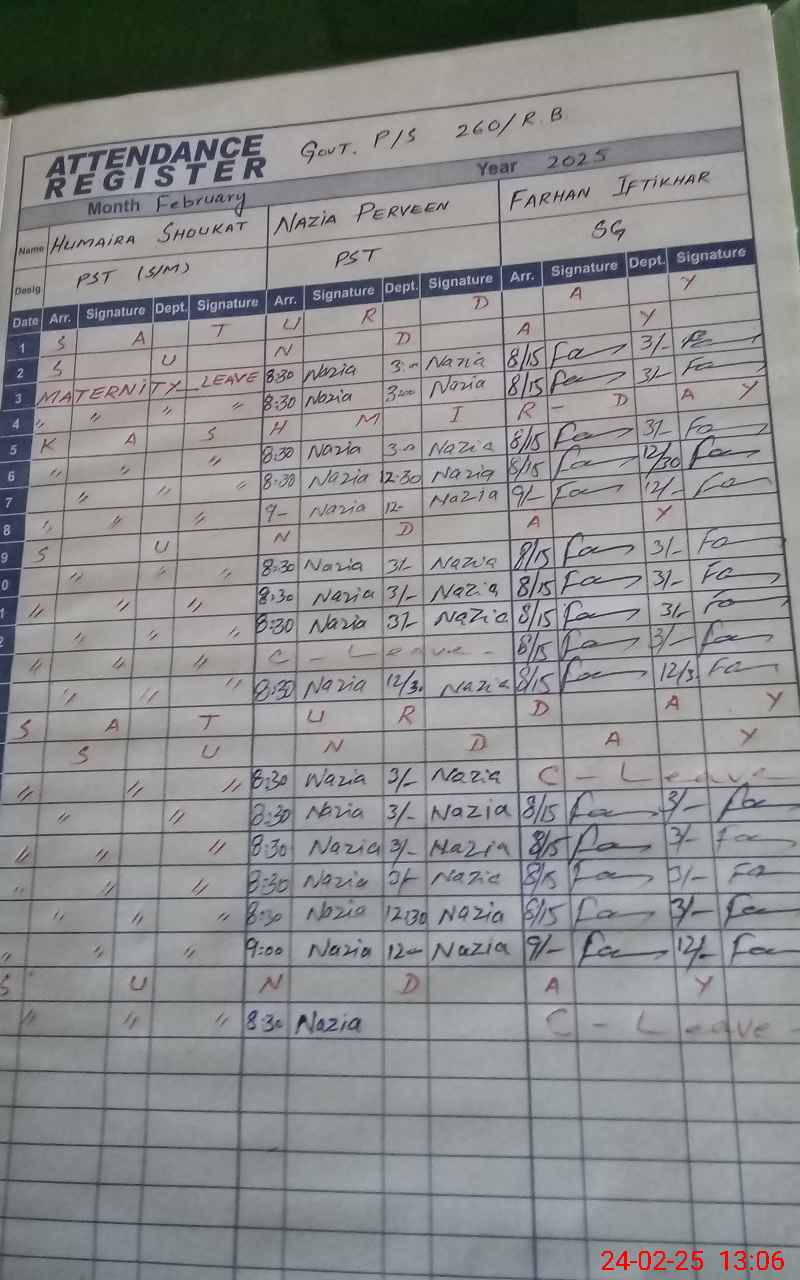 ATTENDANCE REGISTER GOVT. P/S 260/R.B
Month February Year 2025
Name HUMAIRA SHOUKAT NAZIA PERVEEN FARHAN IFTIKHAR
Desig. PST (S/M) PST SG
Date Arr. Signature Dept. Signature Arr. Signature Dept. Signature Arr. Signature Dept. Signature
1 S A T U R D A Y
2 S U N D A Y
3 MATERNITY LEAVE 8:30 Nazia 3:00 Nazia 8/15 Fa 3/-
4 〃 〃 〃 〃 8:30 Nazia 3:00 Nazia 8/15 Fa 3/- Fa
5 K A S H M I R - D A Y
6 〃 〃 〃 8:30 Nazia 3:00 Nazia 8/15 Fa 3/- Fa
7 〃 〃 〃 8:30 Nazia 12:30 Nazia 8/15 Fa 12/30 Fa
8 〃 〃 〃 9- Nazia 12- Nazia 9/- Fa 12/- Fa
9 S U N D A Y
0 〃 〃 〃 8:30 Nazia 3/- Nazia 8/15 Fa 3/- Fa
1 〃 〃 〃 8:30 Nazia 3/- Nazia 8/15 Fa 3/- Fa
2 〃 〃 〃 8:30 Nazia 3/- Nazia 8/15 Fa 3/- Fa
〃 〃 〃 C - Leave - 8/15 Fa 3/- Fa
〃 〃 〃 8:30 Nazia 12/3. Nazia 8/15 Fa 12/3. Fa
S A T U R D A Y
S U N D A Y
〃 〃 〃 8:30 Nazia 3/- Nazia C - Leave
〃 〃 8:30 Nazia 3/- Nazia 8/15 Fa 3/- Fa
〃 〃 〃 8:30 Nazia 3/- Nazia 8/15 Fa 3/- Fa
〃 〃 〃 8:30 Nazia 3/- Nazia 8/15 Fa 3/- Fa
〃 〃 〃 8:30 Nazia 12:30 Nazia 8/15 Fa 3/- Fa
〃 〃 〃 9:00 Nazia 12- Nazia 9/- Fa 12/- Fa
S U N D A Y
〃 〃 〃 8:30 Nazia C - Leave -
24-02-25 13:06